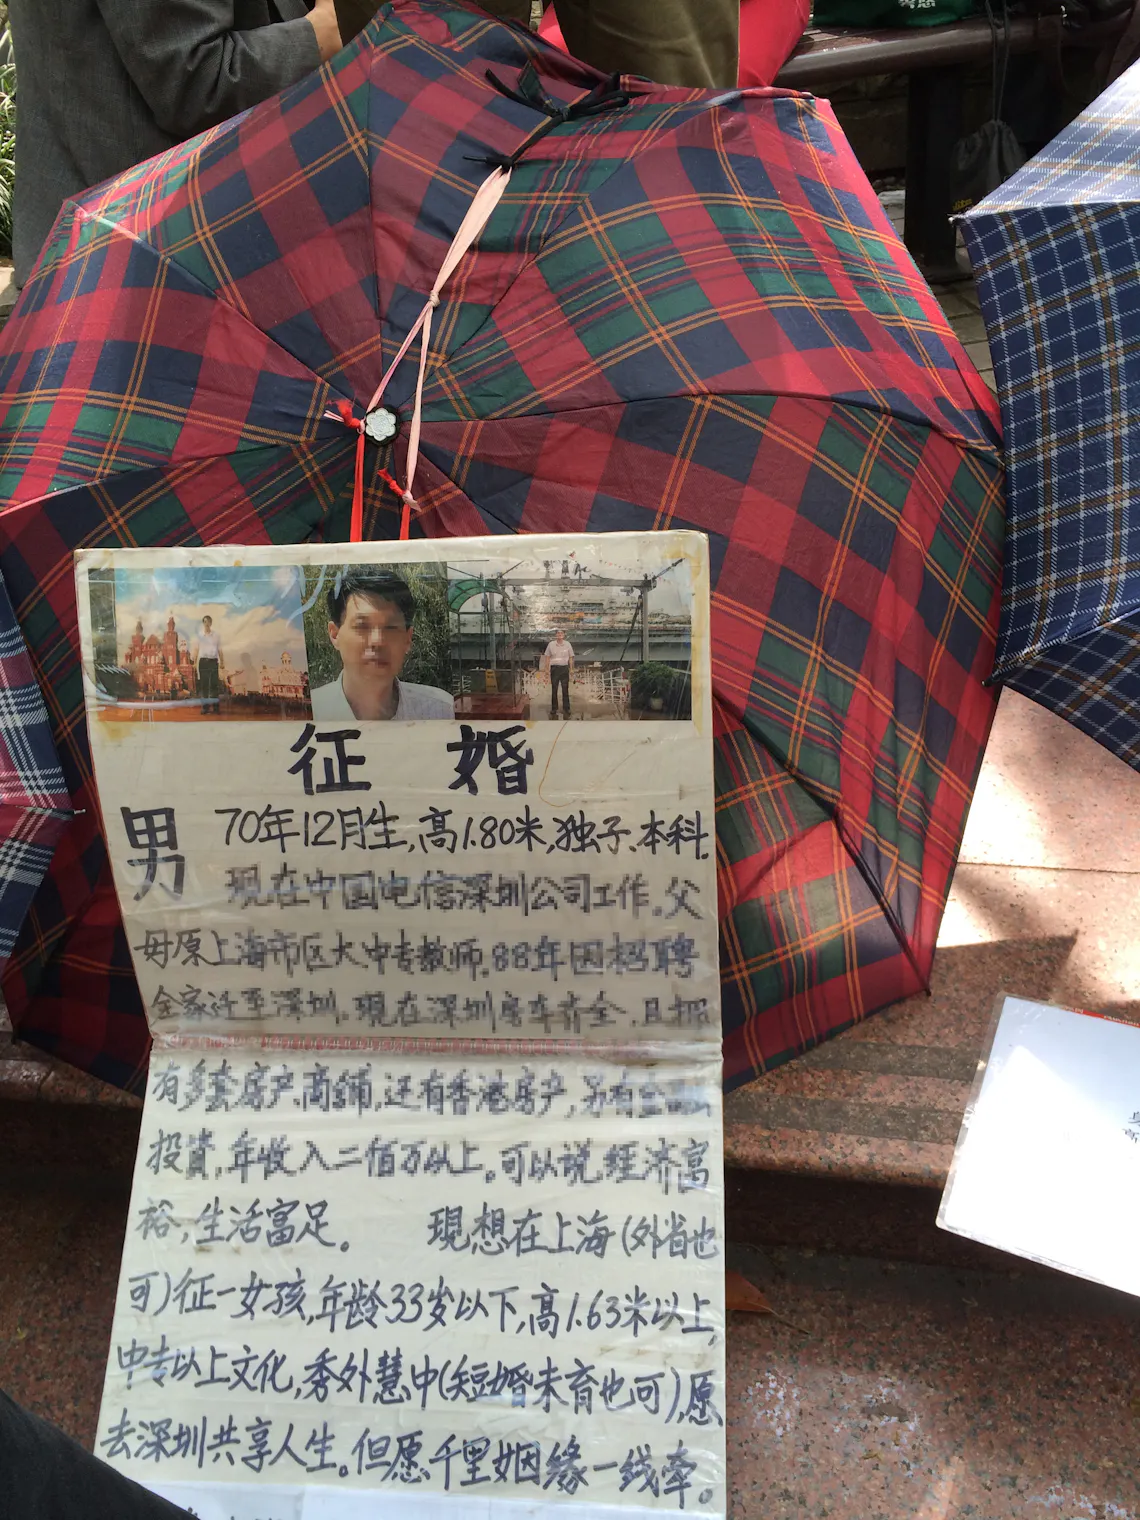 征 婚
男 70年12月生,高1.80米,独子.本科.
现在中国电信深圳公司工作.父
母原上海市区大中专教师.88年因招聘
全家迁至深圳.现在深圳房车齐全.且拥
有多套房产.商铺,还有香港房产,另有金融
投資,年收入二佰万以上。可以说.经济富
裕,生活富足。 現,想在上海(外省也
可)征一女孩,年龄33岁以下,高1.63米以上,
中专以上文化,秀外慧中(短婚未育也可),愿
去深圳共享人生。但愿千里姻缘一线牵。